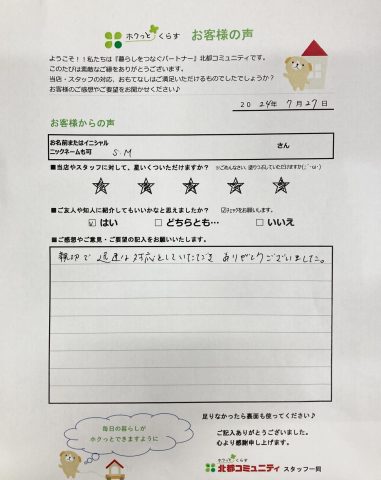 ホクっと くらす お客様の声
ようこそ！！私たちは『暮らしをつなぐパートナー』北都コミュニティです。
このたびは素敵なご縁をありがとうございます。
当店・スタッフの対応、おもてなしはご満足いただけるものでしたでしょうか？
お客様のご感想やご要望をお聞かせください♪
2024年 7月27日
お客様からの声
お名前またはイニシャル
ニックネームも可 S.M さん
■当店やスタッフに対して、星いくつ付けますか？ ※ごめんなさい、塗りつぶしていただけますか(;´･ω･)
■ご友人や知人に紹介してもいいかなと思えましたか？ ☑チェックをお願いします。
☑ はい □ どちらとも… □ いいえ
■ご感想やご意見・ご要望の記入をお願いいたします。
親切で迅速な対応をしていただき ありがとうございました。
足りなかったら裏面も使ってください♪
毎日の暮らしが
ホクっとできますように
ご記入ありがとうございました。
心より感謝申し上げます。
ホクっと くらす
北都コミュニティ スタッフ一同